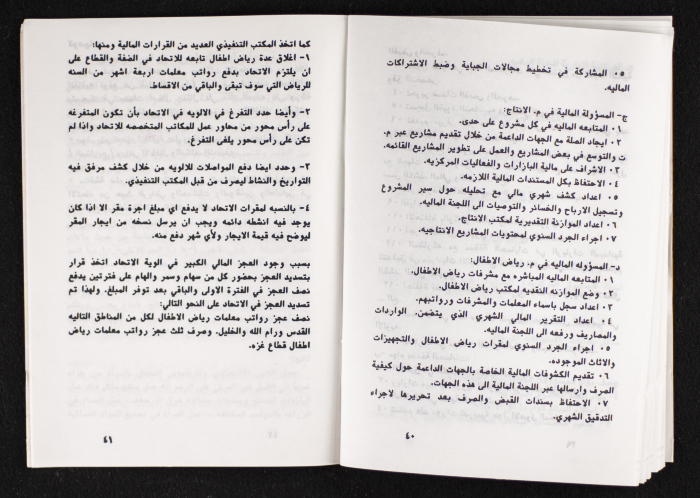 ٠٥ المشاركة في تخطيط مجالات الجباية وضبط الاشتراكات
الماليه.
ج- المسؤولة المالية في م. الانتاج:
٠١ المتابعه الماليه في كل مشروع على حدى.
٠٢ ايجاد الصلة مع الجهات الداعمة من خلال تقديم مشاريع عبر م.
ت والتوسع في بعض المشاريع والعمل على تطوير المشاريع القائمه.
٠٣ الاشراف على مالية البازارات والفعاليات المركزيه.
٠٤ الاحتفاظ بكل المستندات المالية اللازمه.
٠٥ اعداد كشف شهري مالي مع تحليله حول سير المشروع
وتسجيل الارباح والخسائر والتوصيات الى اللجنة الماليه.
٠٦ اعداد الموازنة التقديرية لمكتب الانتاج.
٠٧ اجراء الجرد السنوي لمحتويات المشاريع الانتاجيه.
د- المسؤوله الماليه في م. رياض الاطفال:
٠١ المتابعه الماليه المباشره مع مشرفات رياض الاطفال.
٠٢ وضع الموازنه النقديه لمكتب رياض الاطفال.
٠٣ اعداد سجل باسماء المعلمات والمشرفات ورواتبهم.
٠٤ اعداد التقرير المالي الشهري الذي يتضمن. الواردات
والمصاريف ورفعه الى اللجنة الماليه.
٠٥ اجراء الجرد السنوي لمقرات رياض الاطفال والتجهيزات
والاثاث الموجوده.
٠٦ تقديم الكشوفات المالية الخاصة بالجهات الداعمة حول كيفية
الصرف وارسالها عبر اللجنة المالية الى هذه الجهات.
٠٧ الاحتفاظ بسندات القبض والصرف بعد تحريرها لاجراء
التدقيق الشهري.
٤٠
كما اتخذ المكتب التنفيذي العديد من القرارات المالية ومنها:
١- اغلاق عدة رياض اطفال تابعه للاتحاد في الضفة والقطاع على
ان يلتزم الاتحاد بدفع رواتب معلمات اربعة اشهر من السنه
للرياض التي سوف تبقى والباقي من الاقساط.
٢- وأيضا حدد التفرغ في الالويه في الاتحاد بأن تكون المتفرغه
على رأس محور من محاور عمل للمكاتب المتخصصه للاتحاد واذا لم
تكن على رأس محور يلغى التفرغ.
٣- وحدد ايضا دفع المواصلات للالويه من خلال كشف مرفق فيه
التواريخ والنشاط ليصرف من قبل المكتب التنفيذي.
٤- بالنسبه لمقرات الاتحاد لا يدفع اي مبلغ اجرة مقر الا اذا كان
يوجد فيه انشطه دائمه ويجب ان يرسل نسخه من ايجار المقر
ليوضح فيه قيمة الايجار ولأي شهر دفع منه.
بسبب وجود العجز المالي الكبير في الوية الاتحاد اتخذ قرار
بتسديد العجز بحضور كل من سهام وسمر والهام على فترتين يدفع
نصف العجز في الفترة الاولى والباقي بعد توفر المبلغ. ولهذا تم
تسديد العجز في الاتحاد على النحو التالي:
نصف عجز رواتب معلمات رياض الاطفال لكل من المناطق التاليه
القدس ورام الله والخليل. وصرف ثلث عجز رواتب معلمات رياض
اطفال قطاع غزه.
٤١